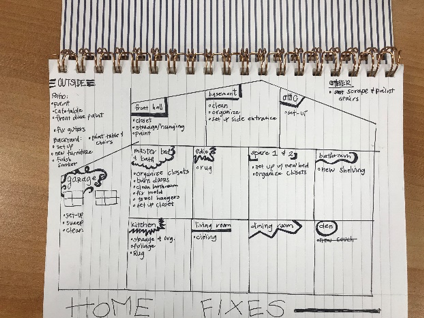 OUTSIDE
Patio:
• paint
• front door paint
• fix gutters
backyard:
• paint table &
chairs
• set up
new furniture
garage
• set-up
• sweep
• clean
front hall
• closet
• storage/hanging
• paint
basement
• clean
• organize
• set up side entrance
attic
• set-up
OTHER
scrape & paint
stairs
master bed
& bath
• organize closets
• clean bathroom
• fix mold
• towel hangers
• set up closet
• rug
spare 1 & 2
• set up new bed
• organize closets
bathroom
• new shelving
kitchen
• storage & org.
• foliage
• Rug
living room
dining room
den
new couch
HOME FIXES